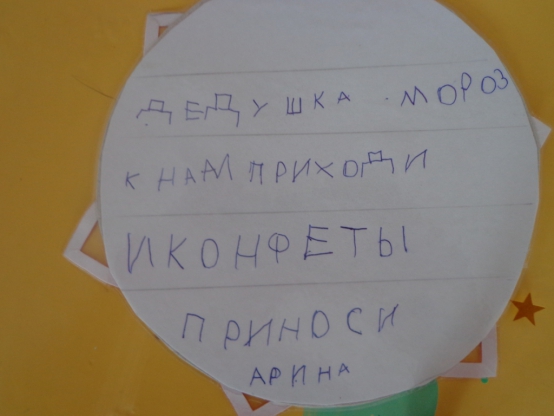 ДЕДУШКА МОРОЗ
К НАМ ПРИХОДИ
И КОНФЕТЫ
ПРИНОСИ
АРИНА